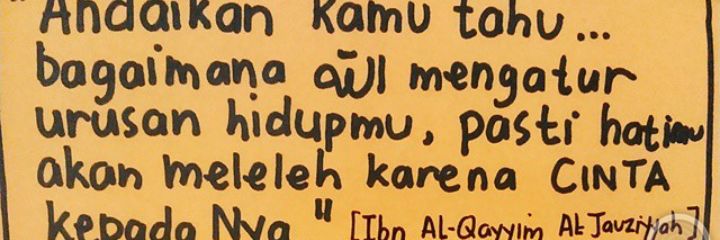 "Andaikan kamu tahu...
bagaimana الله mengatur
urusan hidupmu, pasti hatimu
akan meleleh karena CINTA
kepada Nya" [Ibn Al-Qayyim Al-Jauziyyah]